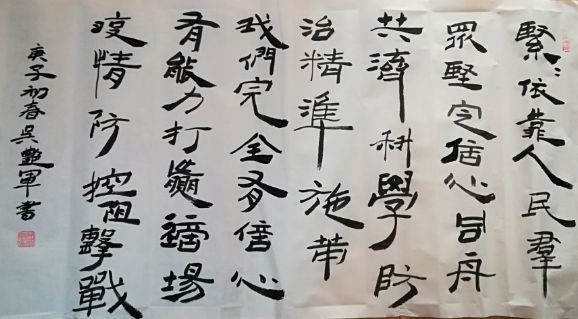 緊〻依靠人民羣
眾堅定信心同舟
共濟科學防
治精準施策
我們完全有信心
有能力打贏這場
疫情防控阻擊戰
庚子初春吳艷軍書